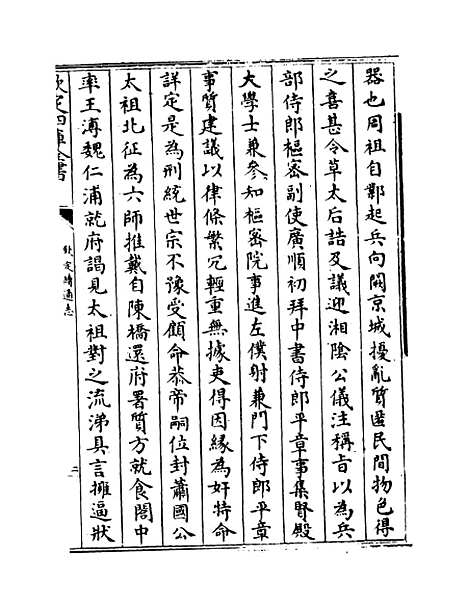 器也周祖自鄴起兵向闕京城擾亂質匿民間物色得
之喜甚令草太后誥及議迎湘陰公儀注稱旨以為兵
部侍郎樞密副使廣順初拜中書侍郎平章事集賢殿
大學士兼參知樞密院事進左僕射兼門下侍郎平章
事質建議以律條繁冗輕重無據吏得因緣為奸特命
詳定是為刑統世宗不豫受顧命恭帝嗣位封蕭國公
太祖北征為六師推戴自陳橋還府署質方就食閣中
率王溥魏仁浦就府謁見太祖對之流涕具言擁逼狀
欽定四庫全書
欽定續通志
二